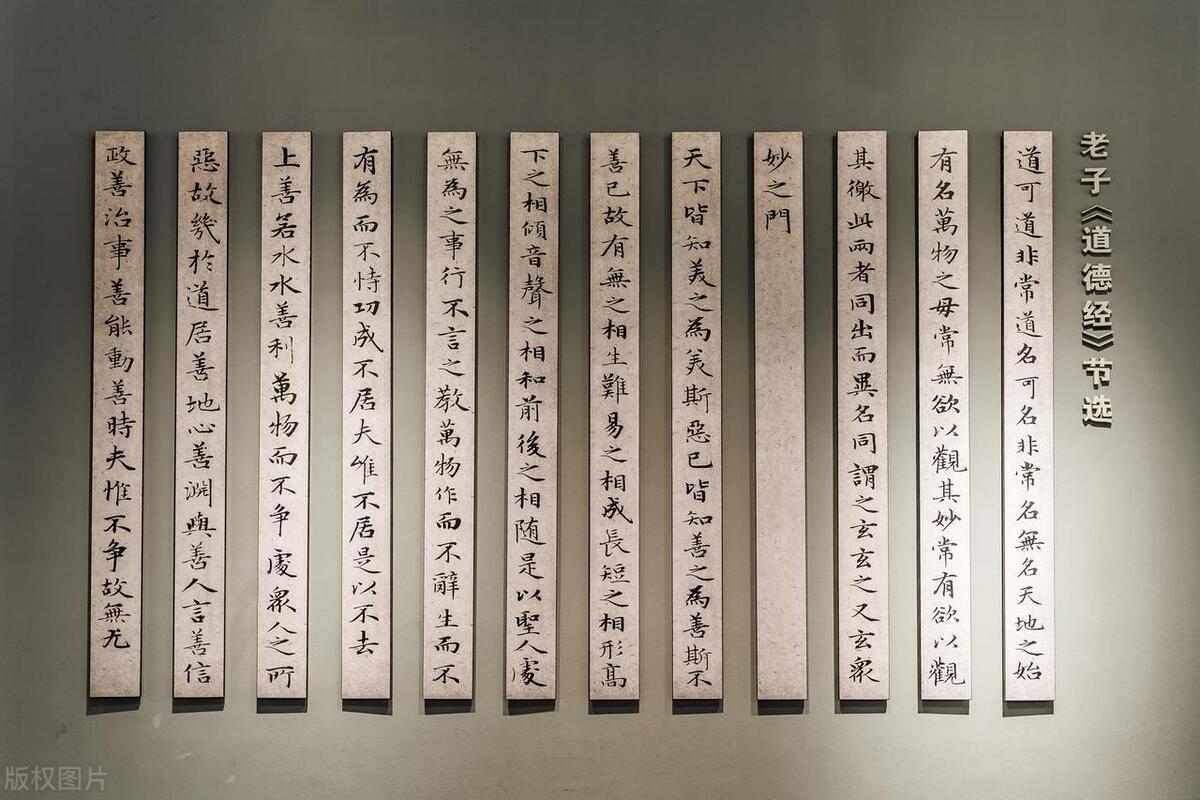 老子《道德经》节选
道可道非常道名可名非常名無名天地之始
有名萬物之母常無欲以觀其妙常有欲以觀
其徼此兩者同出而異名同謂之玄玄之又玄眾
妙之門
天下皆知美之為美斯惡已皆知善之為善斯不
善已故有無之相生難易之相成長短之相形高
下之相傾音聲之相和前後之相随是以聖人處
無為之事行不言之教萬物作而不辭生而不
有為而不恃功成不居夫惟不居是以不去
上善若水水善利萬物而不争處眾人之所
惡故幾於道居善地心善淵與善人言善信
政善治事善能動善時夫惟不争故無尤
版权图片